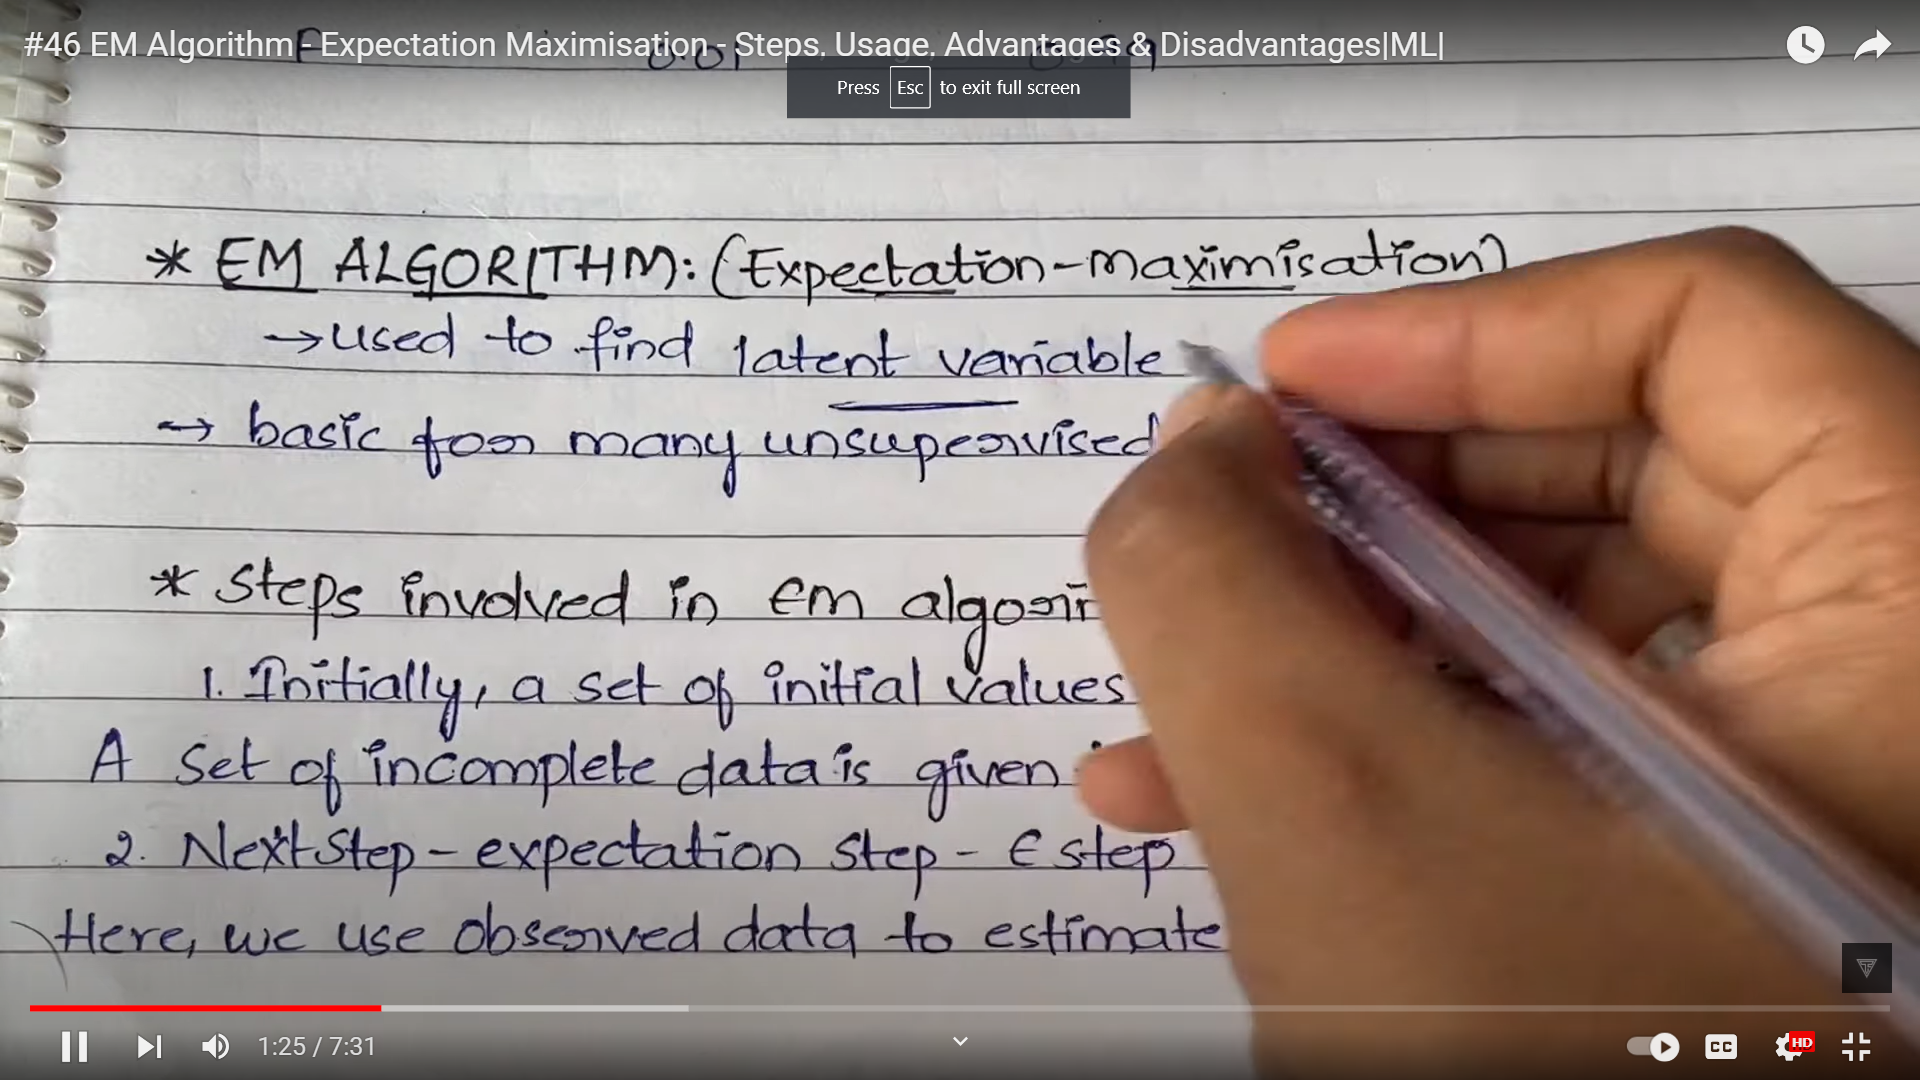 #46 EM Algorithm - Expectation Maximisation - Steps, Usage, Advantages & Disadvantages|ML|
Press Esc to exit full screen
* EM ALGORITHM: (Expectation-maximisation)
→ used to find latent variable
→ basic for many unsupervised
* Steps involved in EM
1. Initially, a set of initial values
A set of incomplete data is given
2. Next step - expectation step - E step
Here, we use observed data to estimate
1:25 / 7:31
CC
HD